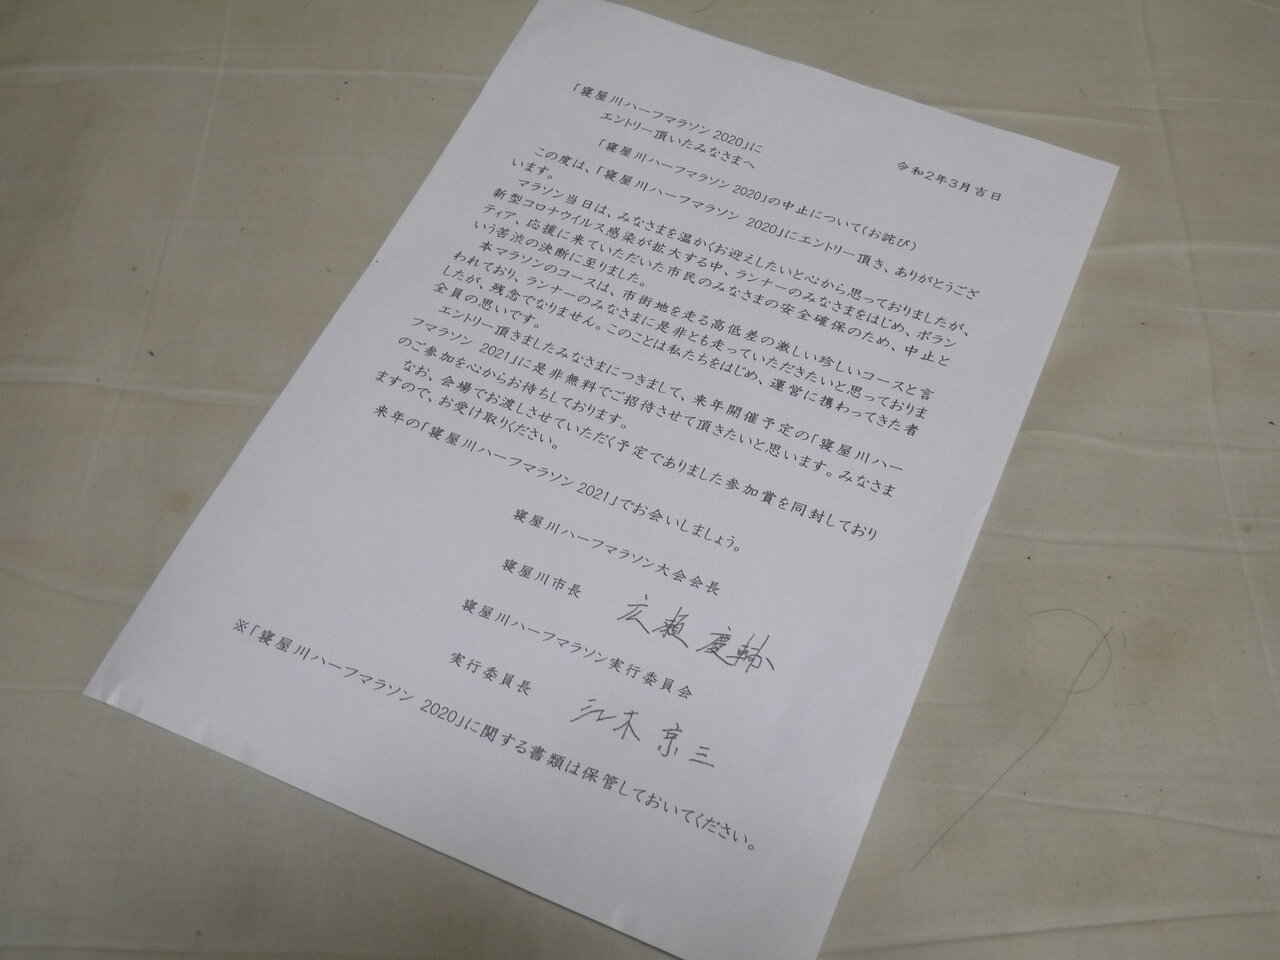 「寝屋川ハーフマラソン 2020」に
エントリー頂いたみなさまへ
令和2年3月吉日
「寝屋川ハーフマラソン 2020」の中止について(お詫び)
この度は、「寝屋川ハーフマラソン 2020」にエントリー頂き、ありがとうござ
います。
マラソン当日は、みなさまを温かくお迎えしたいと心から思っておりましたが、
新型コロナウイルス感染が拡大する中、ランナーのみなさまをはじめ、ボラン
ティア、応援に来ていただいた市民のみなさまの安全確保のため、中止と
いう苦渋の決断に至りました。
本マラソンのコースは、市街地を走る高低差の激しい珍しいコースと言
われており、ランナーのみなさまに是非とも走っていただきたいと思っておりま
したが、残念でなりません。このことは私たちをはじめ、運営に携わってきた者
全員の思いです。
エントリー頂きましたみなさまにつきまして、来年開催予定の「寝屋川ハー
フマラソン 2021」に是非無料でご招待させて頂きたいと思います。みなさま
のご参加を心からお待ちしております。
なお、会場でお渡しさせていただく予定でありました参加賞を同封しており
ますので、お受け取りください。
来年の「寝屋川ハーフマラソン 2021」でお会いしましょう。
寝屋川ハーフマラソン大会会長
寝屋川市長 広瀬慶輔
寝屋川ハーフマラソン実行委員会
実行委員長 木京三
※「寝屋川ハーフマラソン 2020」に関する書類は保管しておいてください。